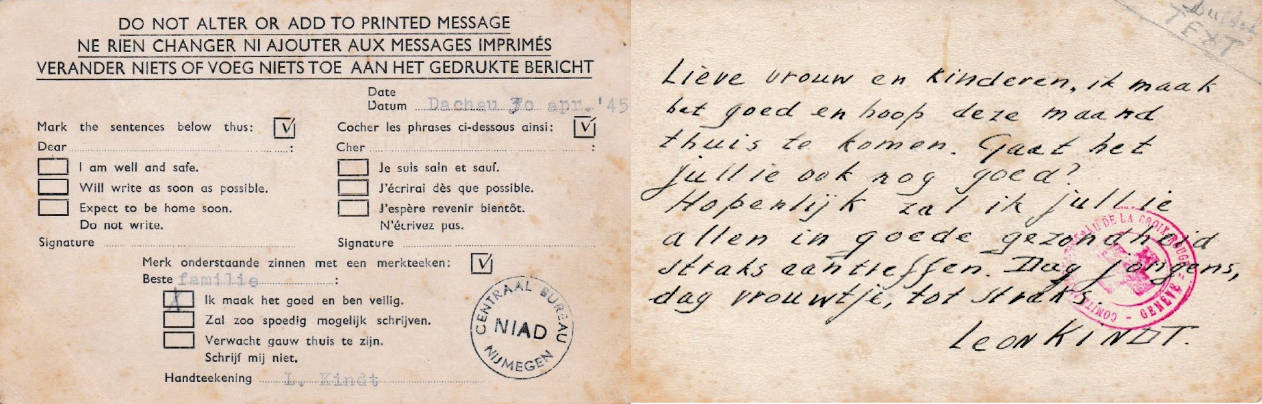 DO NOT ALTER OR ADD TO PRINTED MESSAGE
NE RIEN CHANGER NI AJOUTER AUX MESSAGES IMPRIMÉS
VERANDER NIETS OF VOEG NIETS TOE AAN HET GEDRUKTE BERICHT
Date
Datum Dachau 30 apr. '45
Mark the sentences below thus:
Dear :
I am well and safe.
Will write as soon as possible.
Expect to be home soon.
Do not write.
Signature
Cocher les phrases ci-dessous ainsi:
Cher :
Je suis sain et sauf.
J'écrirai dès que possible.
J'espère revenir bientôt.
N'écrivez pas.
Signature
Merk onderstaande zinnen met een merkteeken:
Beste familie :
Ik maak het goed en ben veilig.
Zal zoo spoedig mogelijk schrijven.
Verwacht gauw thuis te zijn.
Schrijf mij niet.
Handteekening L. Kindt
CENTRAAL BUREAU
NIAD
NIJMEGEN
TEXT
Lieve vrouw en kinderen, ik maak
het goed en hoop deze maand
thuis te komen. Gaat het
jullie ook nog goed?
Hopenlijk zal ik jullie
allen in goede gezondheid
straks aantreffen. Dag jongens,
dag vrouwtje, tot straks.
Leon KINDT.
DE LA CROIX ROUGE
GENÈVE
COMITÉ